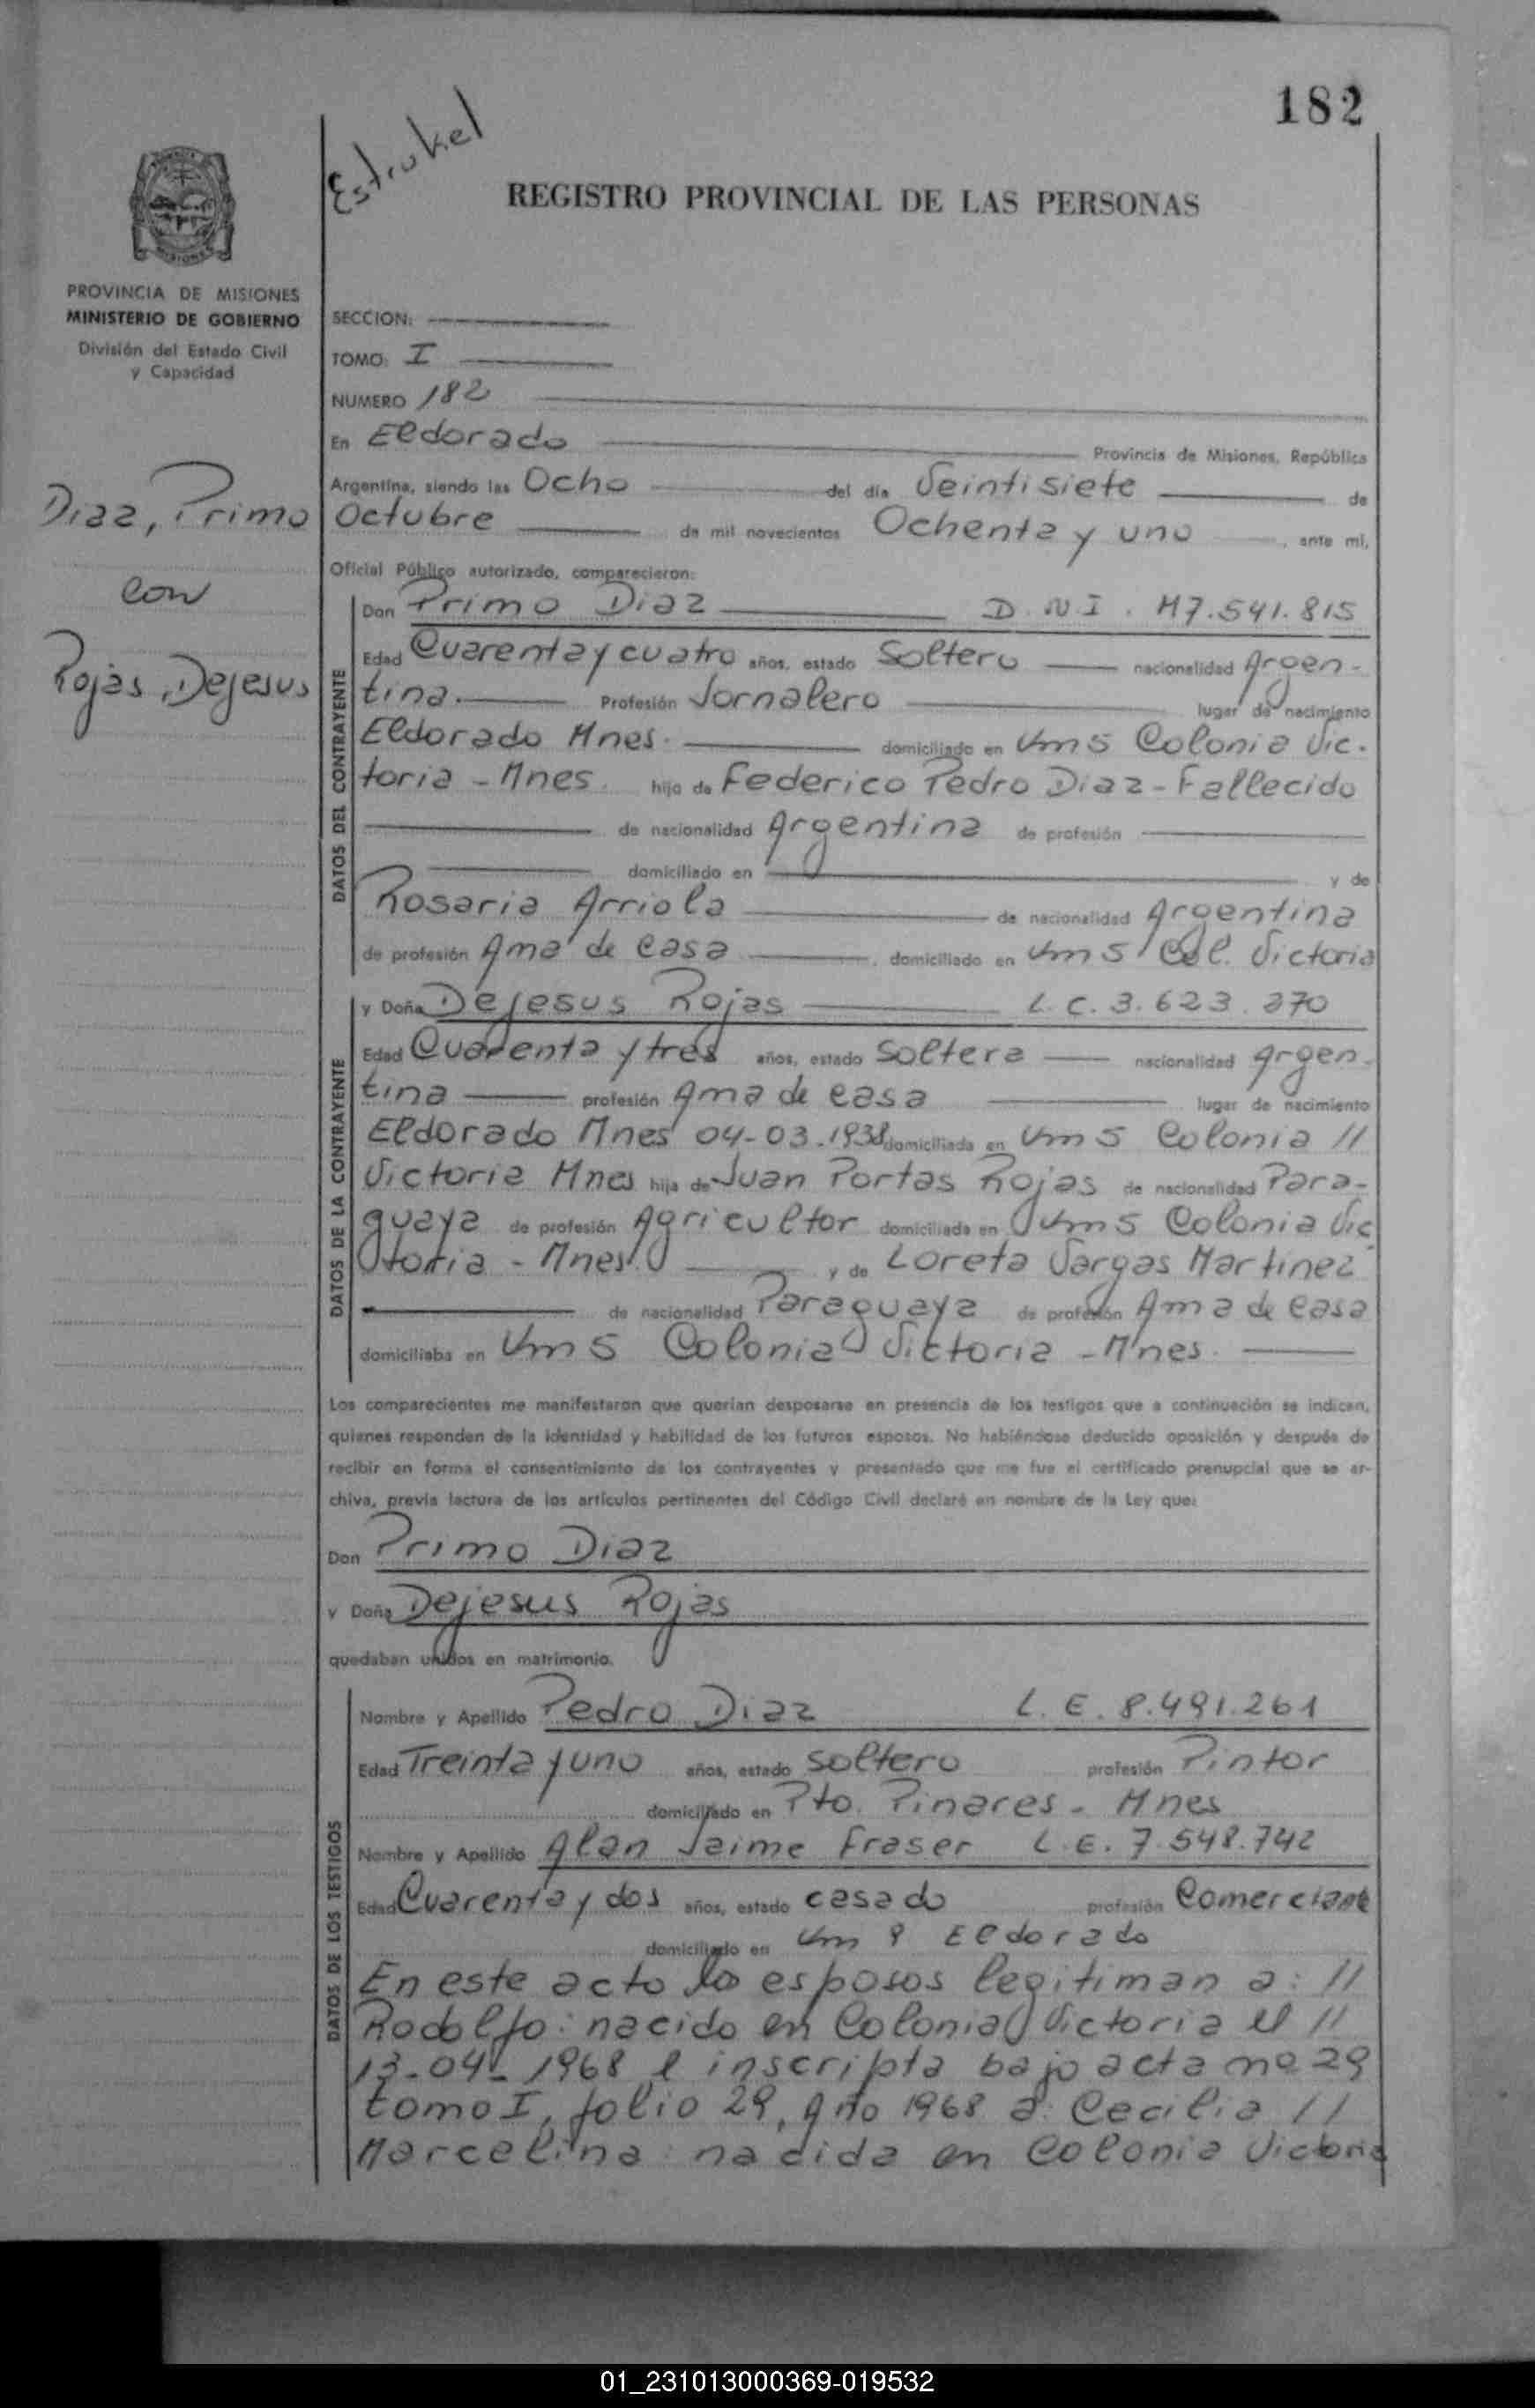 182
Estrukel
REGISTRO PROVINCIAL DE LAS PERSONAS
PROVINCIA DE MISIONES
MINISTERIO DE GOBIERNO
División del Estado Civil
y Capacidad
Diaz, Primo
con
Rojas, Dejesus
SECCION:
TOMO: I
NUMERO 182
En Eldorado Provincia de Misiones, República
Argentina, siendo las Ocho del día Veintisiete de
Octubre de mil novecientos Ochenta y uno, ante mí,
Oficial Público autorizado, comparecieron:
DATOS DEL CONTRAYENTE
Don Primo Diaz D.N.I. M7.541.815
Edad Cuarenta y cuatro años, estado Soltero nacionalidad Argen-
tina. Profesión Jornalero lugar de nacimiento
Eldorado Mnes. domiciliado en Km 5 Colonia Vic-
toria - Mnes. hijo de Federico Pedro Diaz - Fallecido
de nacionalidad Argentina de profesión
domiciliado en y de
Rosaria Arriola de nacionalidad Argentina
de profesión Ama de casa, domiciliado en Km 5 Col. Victoria
DATOS DE LA CONTRAYENTE
y Doña Dejesus Rojas L.C. 3.623.270
Edad Cuarenta y tres años, estado soltera nacionalidad Argen-
tina profesión Ama de casa lugar de nacimiento
Eldorado Mnes 04-03-1938 domiciliada en Km 5 Colonia //
Victoria Mnes hija de Juan Portas Rojas de nacionalidad Para-
guaya de profesión Agricultor domiciliada en Km 5 Colonia Vic
toria - Mnes. y de Loreta Vargas Martinez
de nacionalidad Paraguaya de profesión Ama de casa
domiciliaba en Km 5 Colonia Victoria - Mnes.
Los comparecientes me manifestaron que querían desposarse en presencia de los testigos que a continuación se indican,
quienes responden de la identidad y habilidad de los futuros esposos. No habiéndose deducido oposición y después de
recibir en forma el consentimiento de los contrayentes y presentado que me fue el certificado prenupcial que se ar-
chiva, previa lectura de los artículos pertinentes del Código Civil declaré en nombre de la Ley que:
Don Primo Diaz
y Doña Dejesus Rojas
quedaban unidos en matrimonio.
DATOS DE LOS TESTIGOS
Nombre y Apellido Pedro Diaz L.E. 8.491.261
Edad Treinta y uno años, estado soltero profesión Pintor
domiciliado en Pto. Pinares - Mnes
Nombre y Apellido Alan Jaime Fraser L.E. 7.548.742
Edad Cuarenta y dos años, estado casado profesión Comerciante
domiciliado en Km 9 Eldorado
En este acto los esposos legitiman a: //
Rodolfo: nacido en Colonia Victoria el //
13-04-1968 e inscripta bajo acta no 29
tomo I, folio 29, Año 1968 a: Cecilia //
Marcelina: nacida en Colonia Victoria
01_231013000369-019532